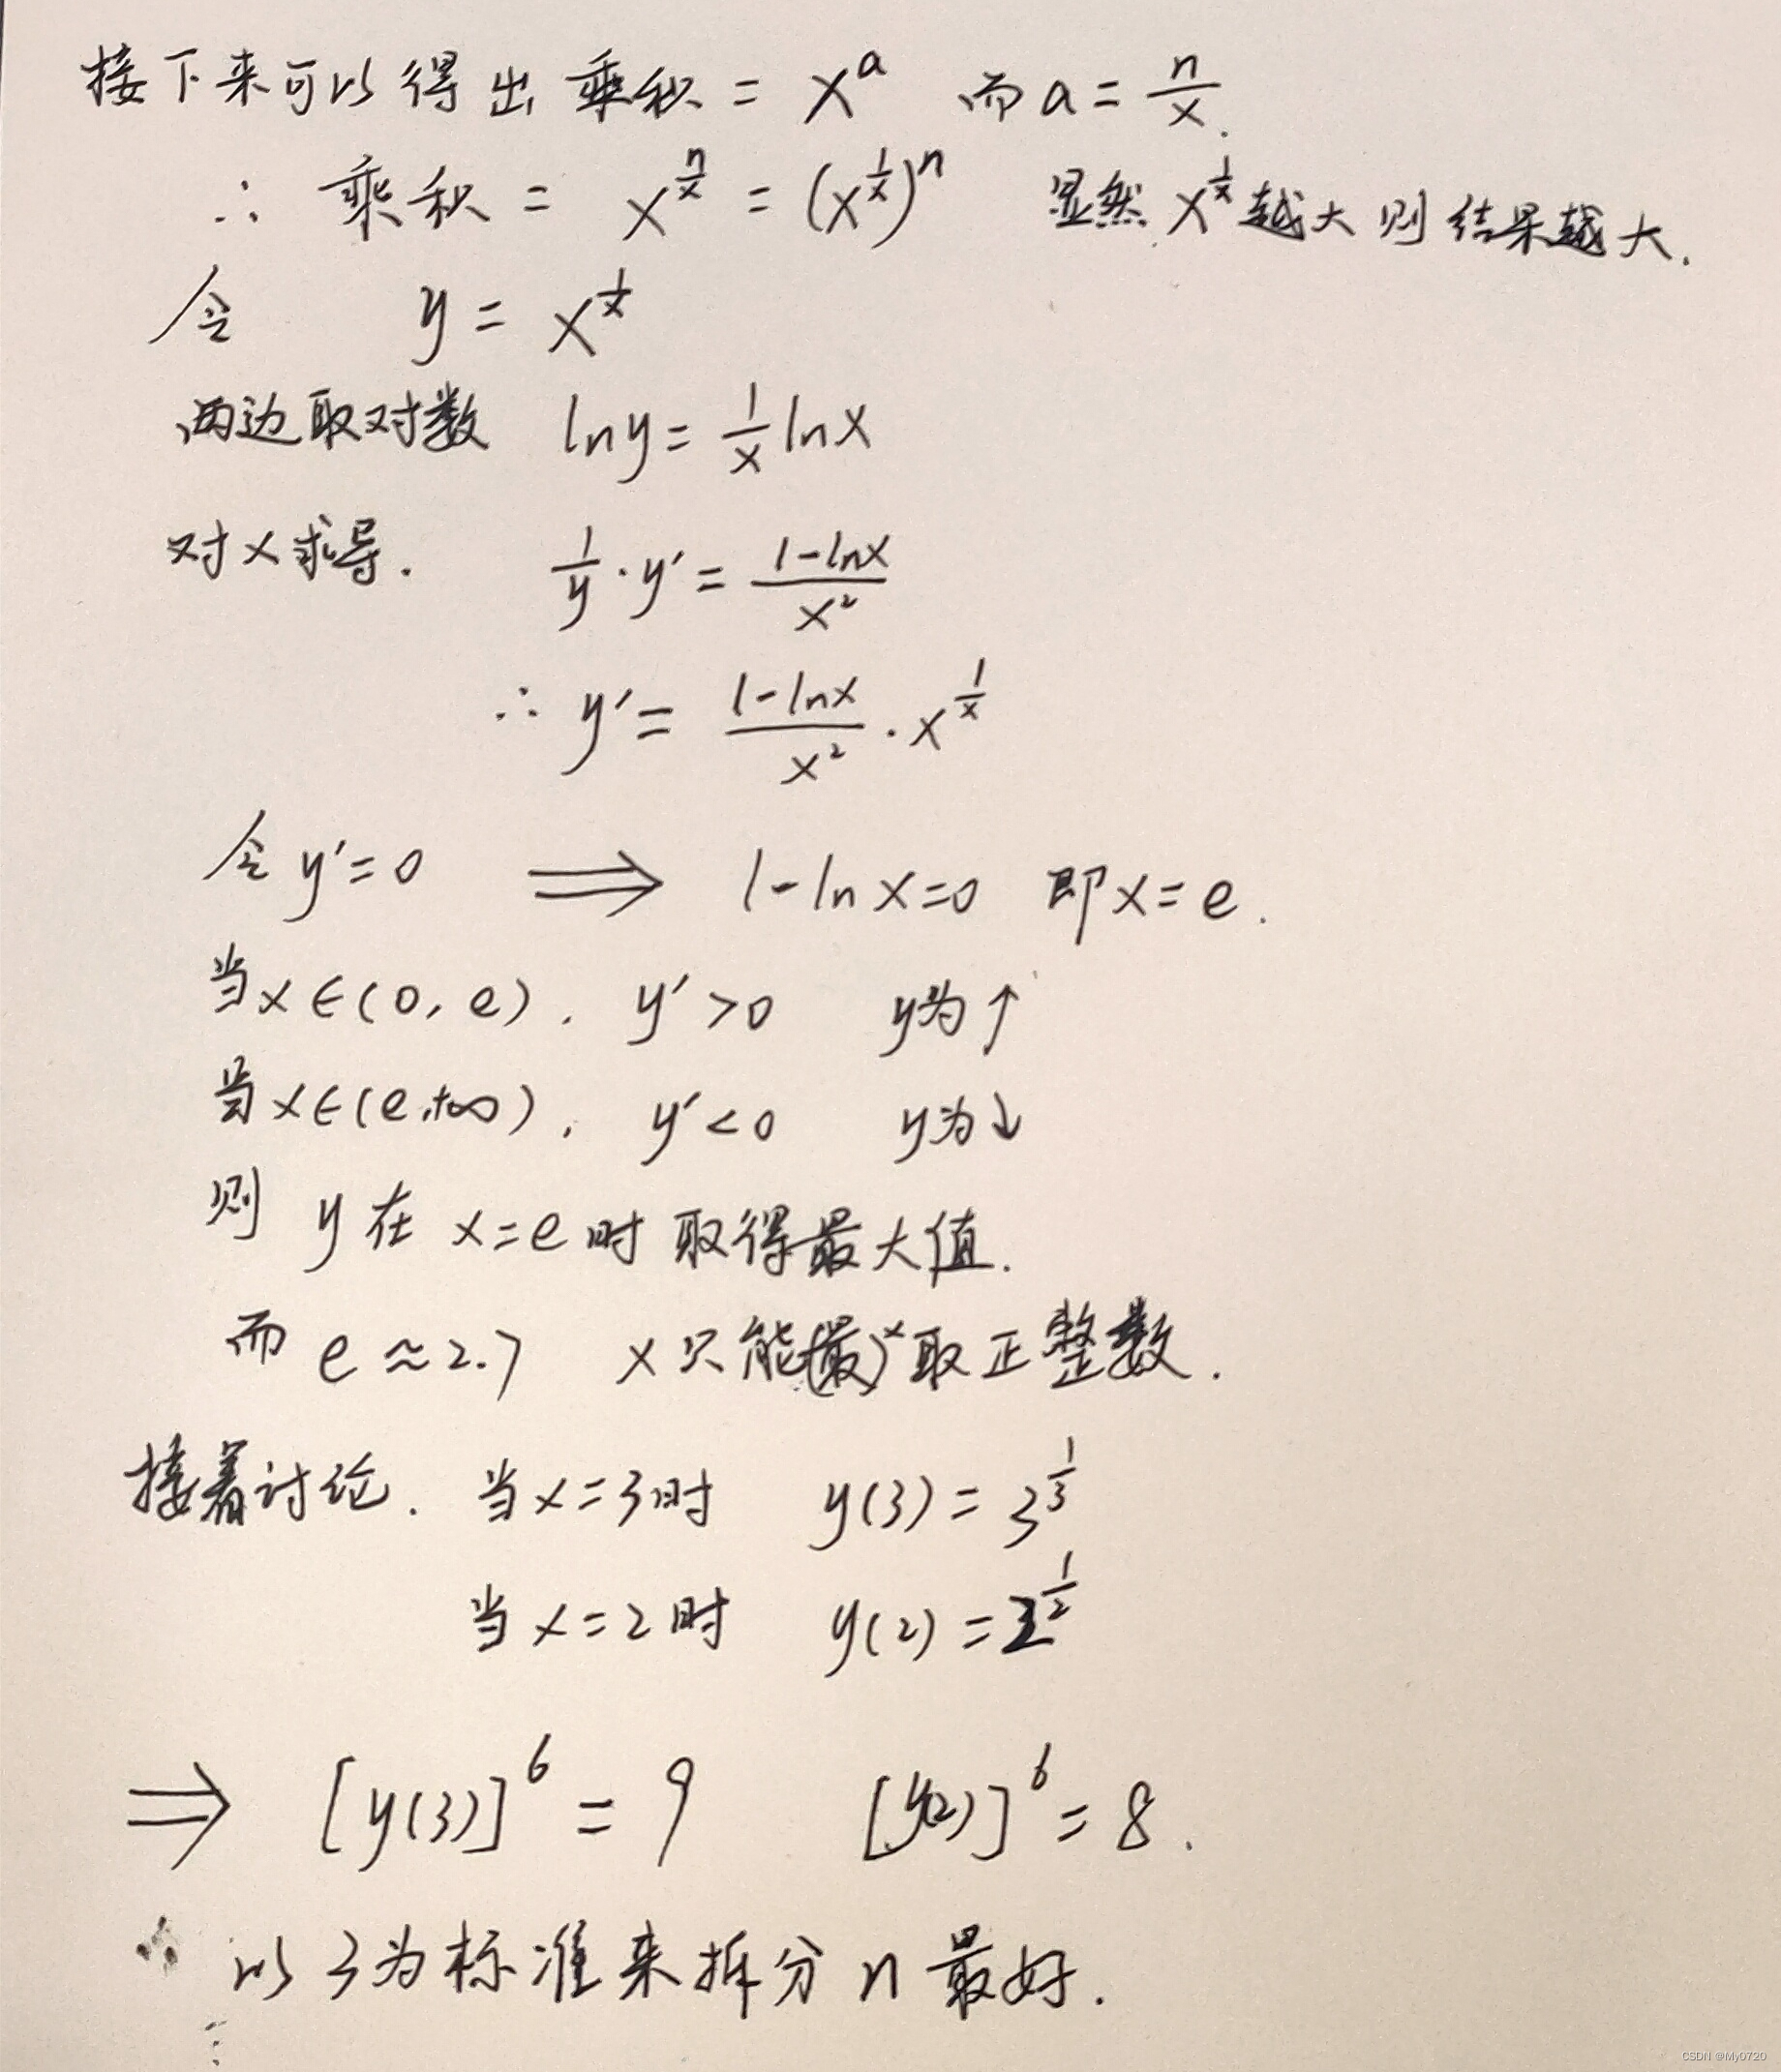 接下来可以得出乘积 = x^a 而 a = n/x.
∴ 乘积 = x^(n/x) = (x^(1/x))^n 显然 x^(1/x) 越大则结果越大.
令 y = x^(1/x)
两边取对数 lny = 1/x lnx
对x求导. 1/y · y' = (1-lnx)/x²
∴ y' = (1-lnx)/x² · x^(1/x)
令 y'=0 ⟹ 1-lnx=0 即x=e.
当x∈(0,e). y'>0 y为↑
当x∈(e,+∞). y'<0 y为↓
则 y在 x=e时 取得最大值.
而 e≈2.7 x只能(最)×取正整数.
接着讨论. 当x=3时 y(3) = 3^(1/3)
当x=2时 y(2) = 2^(1/2)
⟹ [y(3)]^6 = 9 [y(2)]^6 = 8.
∴ 以3为标准来拆分n最好.
CSDN @My0720